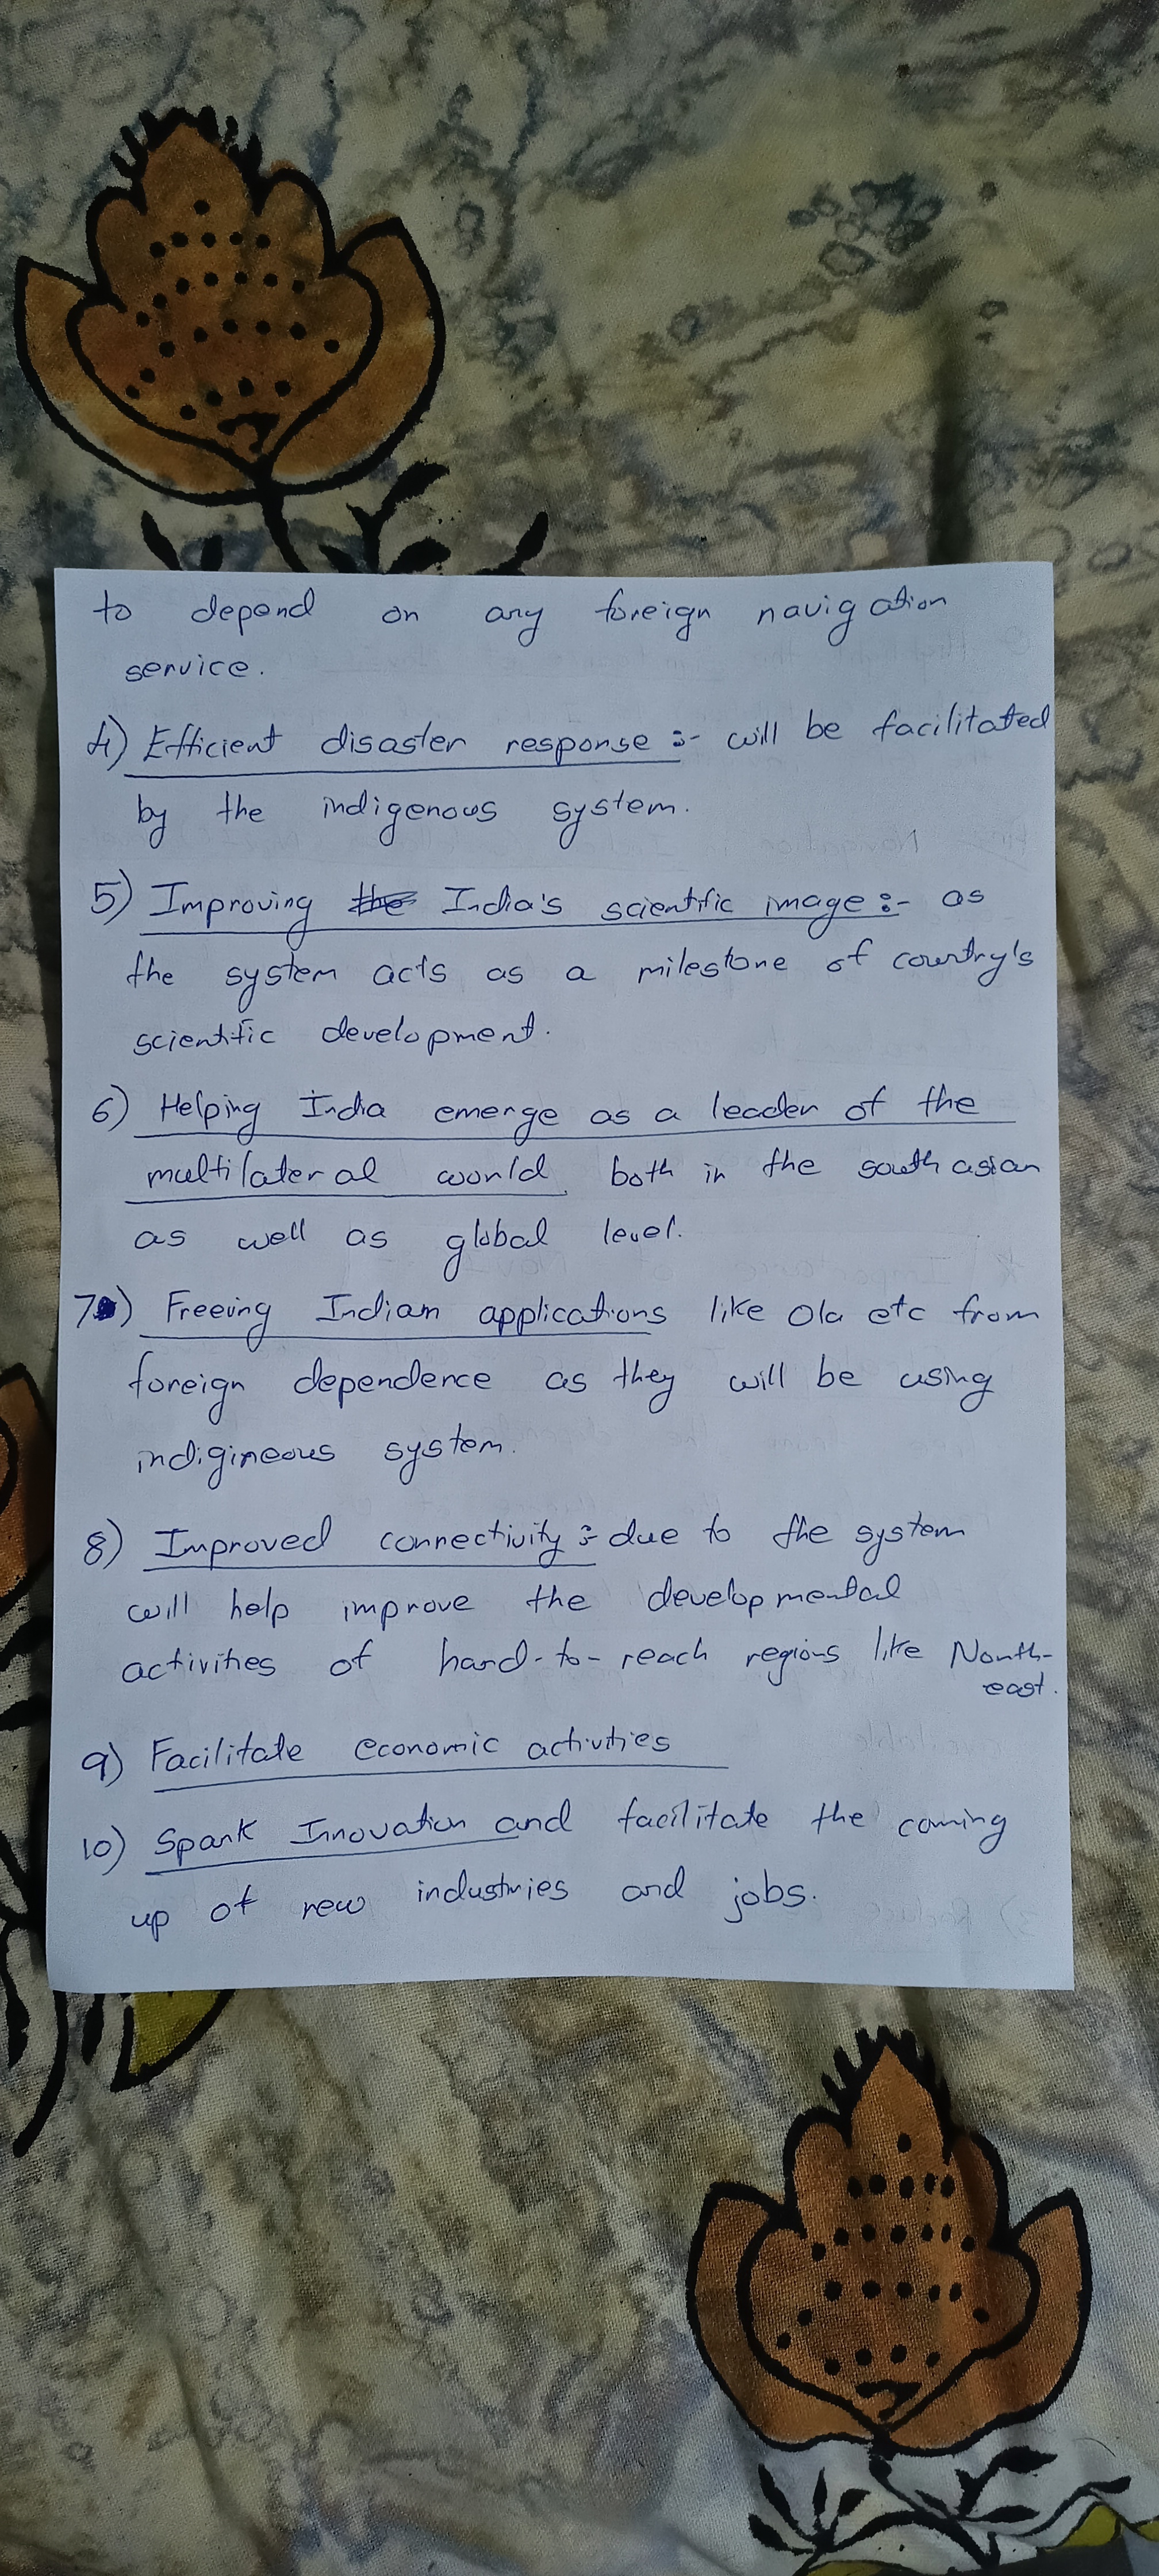 to depend on any foreign navigation
service.
4) Efficient disaster response :- will be facilitated
by the indigenous system.
5) Improving the India's scientific image :- as
the system acts as a milestone of country's
scientific development.
6) Helping India emerge as a leader of the
multilateral world both in the south asian
as well as global level.
7) Freeing Indian applications like Ola etc from
foreign dependence as they will be using
indigineous system.
8) Improved connectivity :- due to the system
will help improve the developmental
activities of hard-to-reach regions like North-
east.
9) Facilitate economic activities
10) Spark Innovation and facilitate the coming
up of new industries and jobs.